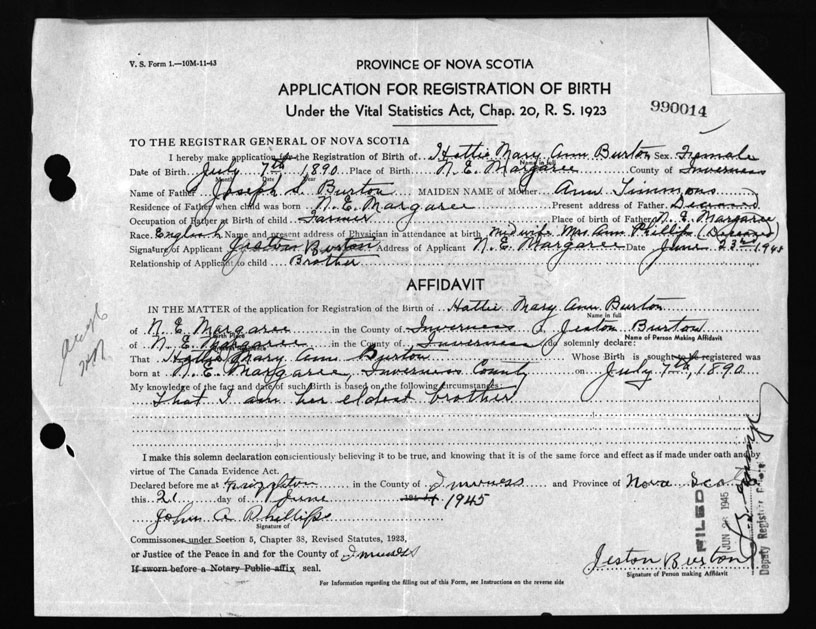 V. S. Form 1.—10M-11-43
PROVINCE OF NOVA SCOTIA
APPLICATION FOR REGISTRATION OF BIRTH
Under the Vital Statistics Act, Chap. 20, R. S. 1923
990014
TO THE REGISTRAR GENERAL OF NOVA SCOTIA
I hereby make application for the Registration of Birth of Hattie Mary Ann Burton Sex Female
Name in full
Date of Birth July 7th, 1890 Place of Birth N. E. Margaree County of Inverness
Month Date Year
Name of Father Joseph S. Burton MAIDEN NAME of Mother Ann Timmons
Residence of Father when child was born N. E. Margaree Present address of Father Deceased
Occupation of Father at Birth of child Farmer Place of birth of Father N. E. Margaree
Race English Name and present address of Physician in attendance at birth midwife Mrs. Ann Phillips (Deceased)
Signature of Applicant Jeston Burton Address of Applicant N. E. Margaree Date June 23rd 1945
Relationship of Applicant to child Brother
AFFIDAVIT
IN THE MATTER of the application for Registration of the Birth of Hattie Mary Ann Burton
Name in full
of N. E. Margaree in the County of Inverness I, Jeston Burton
Name of Person Making Affidavit
of N. E. Margaree in the County of Inverness do solemnly declare:
That Hattie Mary Ann Burton Whose Birth is sought to be registered was
born at N. E. Margaree, Inverness County on July 7th, 1890
My knowledge of the fact and date of such Birth is based on the following circumstances:
That I am her eldest brother
I make this solemn declaration conscientiously believing it to be true, and knowing that it is of the same force and effect as if made under oath and by
virtue of The Canada Evidence Act.
Declared before me at in the County of Inverness and Province of Nova Scotia
this 21 day of June 1945
John A Phillips
Signature of
Commissoner under Section 5, Chapter 38, Revised Statutes, 1923,
or Justice of the Peace in and for the County of Inverness
If sworn before a Notary Public affix seal.
Jeston Burton
Signature of Person making Affidavit
For Information regarding the filling out of this Form, see Instructions on the reverse side
FILED
JUN 1945
Deputy Registrar